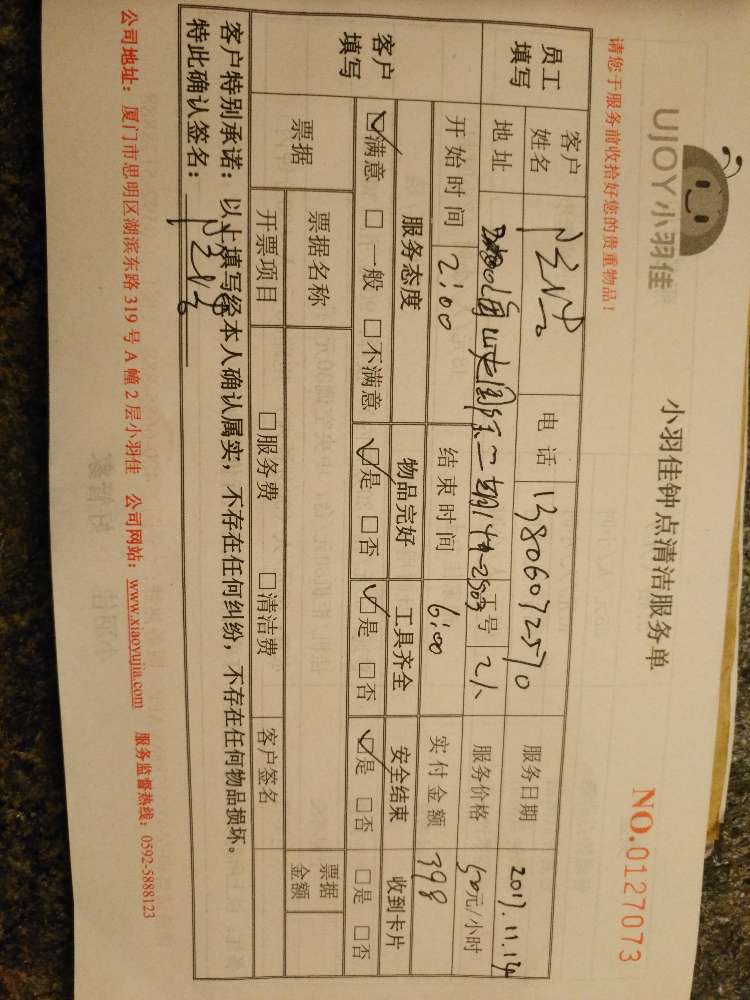 UJOY小羽佳
小羽佳钟点清洁服务单
NO.0127073
请您于服务前收拾好您的贵重物品！
员工填写 客户姓名 电话 13806072570 服务日期 2017.11.14
地址 二期 工号 2人 服务价格 50元/小时
开始时间 2:00 结束时间 6:00 实付金额 398
客户填写 服务态度 物品完好 工具齐全 安全结束 收到卡片
☑满意 □一般 □不满意 ☑是 □否 ☑是 □否 ☑是 □否 □是 □否
票据 票据名称 票据金额
开票项目 □服务费 □清洁费 客户签名
客户特别承诺：以上填写经本人确认属实，不存在任何纠纷，不存在任何物品损坏。
特此确认签名：
公司地址：厦门市思明区湖滨东路319号A幢2层小羽佳 公司网站：www.xiaoyujia.com 服务监督热线：0592-5888123